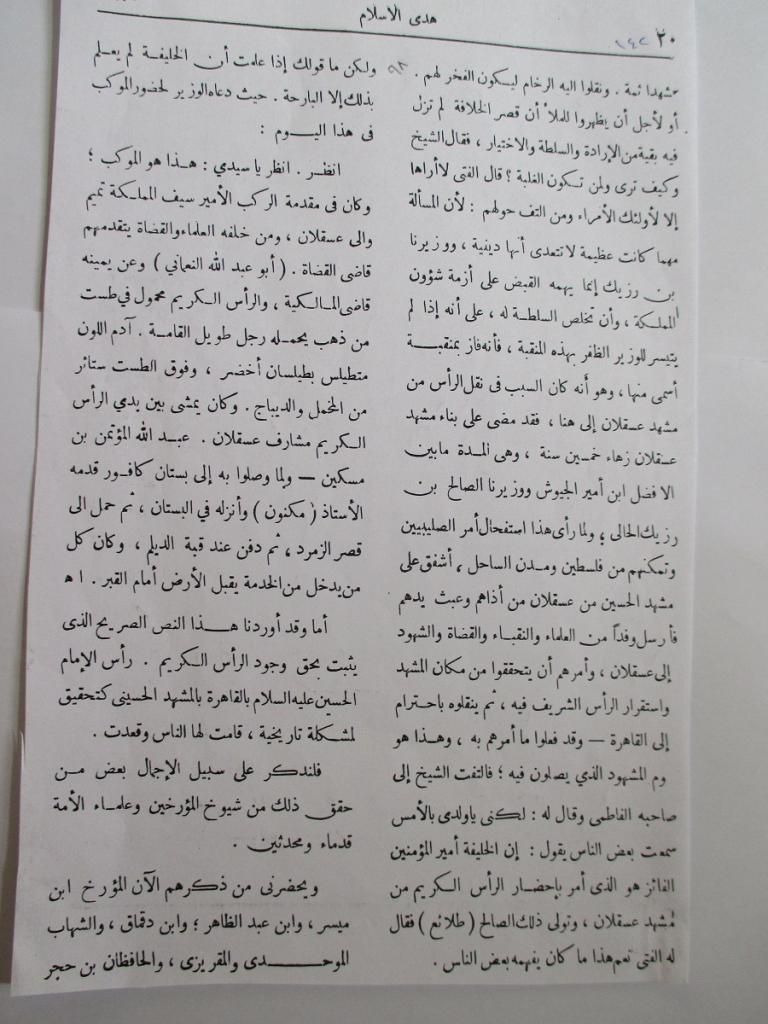 هدى الاسلام
٢٠
٢٤٢
مشهدا ثمة . ونقلوا اليه الرخام ليكون الفخر لهم .
أو لأجل أن يظهروا للملأ أن قصر الخلافة لم تزل
فيه بقية من الإرادة والسلطة والاختيار ، فقال الشيخ
وكيف ترى ولمن تكون الغلبة ؟ قال الفتى لا أراها
إلا لأولئك الأمراء ومن التف حولهم : لأن المسألة
مهما كانت عظيمة لا تتعدى أنها دينية ، ووزيرنا
بن رزيك إنما يهمه القبض على أزمة شؤون
المملكة ، وأن تخلص السلطة له ، على أنه إذا لم
يتيسر للوزير الظفر بهذه المنقبة ، فأنه فاز بمنقبة
أسمى منها ، وهو أنه كان السبب فى نقل الرأس من
مشهد عسقلان إلى هنا ، فقد مضى على بناء مشهد
عسقلان زهاء خمسين سنة ، وهى المدة مابين
الافضل ابن أمير الجيوش ووزيرنا الصالح بن
رزيك الحالى ، ولما رأى هذا استفحال أمر الصليبيين
وتمكنهم من فلسطين ومدن الساحل ، أشفق على
مشهد الحسين من عسقلان من أذاهم وعبث يدهم
فأرسل وفداً من العلماء والنقباء والقضاة والشهود
إلى عسقلان ، وأمرهم أن يتحققوا من مكان المشهد
واستقرار الرأس الشريف فيه ، ثم ينقلوه باحترام
إلى القاهرة — وقد فعلوا ما أمرهم به ، وهذا هو
وم المشهود الذي يصلون فيه ؛ فالتفت الشيخ إلى
صاحبه الفاطمى وقال له : لكنى ياولدى بالأمس
سمعت بعض الناس يقول : إن الخليفة أمير المؤمنين
الفائز هو الذى أمر بإحضار الرأس الكريم من
مشهد عسقلان ، وتولى ذلك الصالح ( طلائع ) فقال
له الفتى نعم هذا ما كان يفهمه بعض الناس .
ولكن ما قولك إذا علمت أن الخليفة لم يعلم
بذلك إلا البارحة . حيث دعاه الوزير لحضور الموكب
فى هذا اليوم :
انظر . انظر يا سيدي : هذا هو الموكب ؛
وكان فى مقدمة الركب الأمير سيف المملكة تميم
والى عسقلان ، ومن خلفه العلماء والقضاة يتقدمهم
قاضى القضاة . ( أبو عبد الله النعماني ) وعن يمينه
قاضى المالكية ، والرأس الكريم محمول في طست
من ذهب يحمله رجل طويل القامة . آدم اللون
متطيلس بطيلسان أخضر ، وفوق الطست ستائر
من المخمل والديباج . وكان يمشى بين يدي الرأس
الكريم مشارف عسقلان . عبد الله المؤتمن بن
مسكين — ولما وصلوا به إلى بستان كافور قدمه
الأستاذ ( مكنون ) وأنزله في البستان ، ثم حمل الى
قصر الزمرد ، ثم دفن عند قبة الديلم ، وكان كل
من يدخل من الخدمة يقبل الأرض أمام القبر . ا ه
أما وقد أوردنا هذا النص الصريح الذى
يثبت بحق وجود الرأس الكريم . رأس الإمام
الحسين عليه السلام بالقاهرة بالمشهد الحسينى كتحقيق
لمشكلة تاريخية ، قامت لها الناس وقعدت .
فلنذكر على سبيل الإجمال بعض من
حقق ذلك من شيوخ المؤرخين وعلماء الأمة
قدماء ومحدثين .
ويحضرنى من ذكرهم الآن المؤرخ ابن
ميسر ، وابن عبد الظاهر ؛ وابن دقماق ، والشهاب
الموحدى والمقريزى ، والحافظان بن حجر